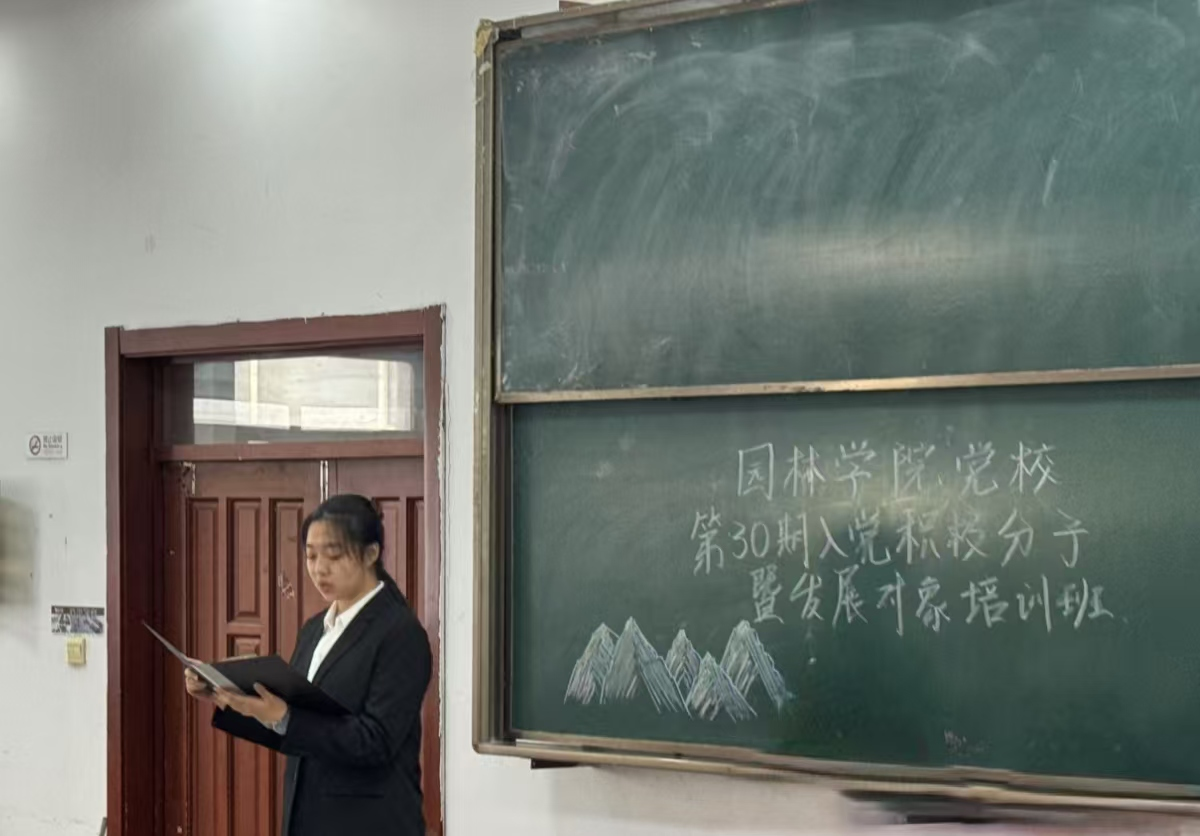 园林学院党校
第30期入党积极分子
暨发展对象培训班